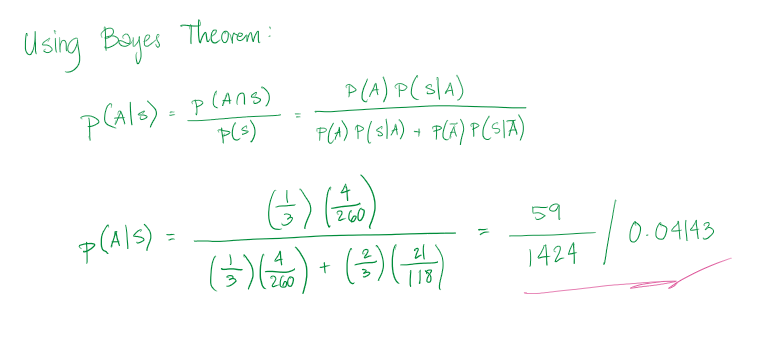 Using Bayes Theorem:
P(A|S) = P(A∩S)/P(S) = P(A) P(S|A)/P(A) P(S|A) + P(Ā) P(S|Ā)
P(A|S) = (1/3)(4/260)/(1/3)(4/260) + (2/3)(21/118) = 59/1424 / 0.04143